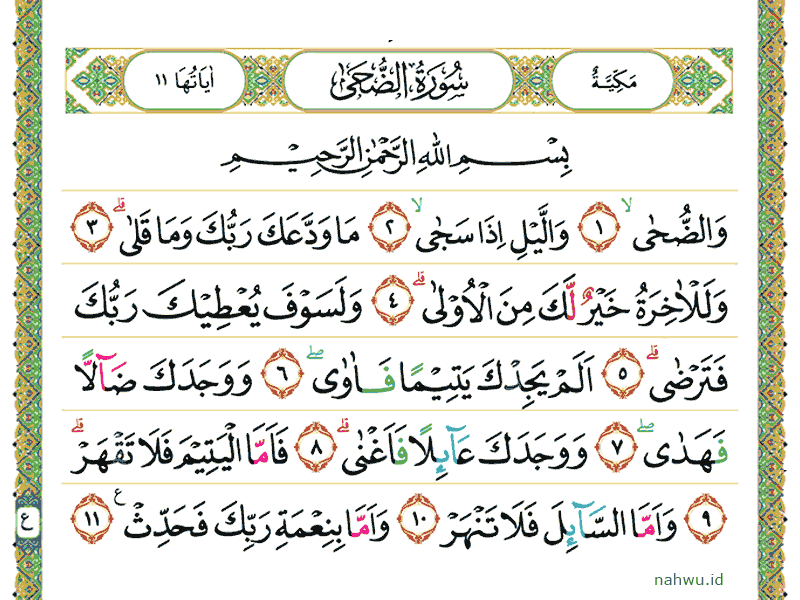 مَكِّيَّةٌ سُوْرَةُ الضُّحٰى اٰيَاتُهَا ١١
بِسْمِ اللهِ الرَّحْمٰنِ الرَّحِيْمِ
وَالضُّحٰىۙ ١ وَالَّيْلِ اِذَا سَجٰىۙ ٢ مَا وَدَّعَكَ رَبُّكَ وَمَا قَلٰىۗ ٣
وَلَلْاٰخِرَةُ خَيْرٌ لَّكَ مِنَ الْاُوْلٰىۗ ٤ وَلَسَوْفَ يُعْطِيْكَ رَبُّكَ
فَتَرْضٰىۗ ٥ اَلَمْ يَجِدْكَ يَتِيْمًا فَاٰوٰىۖ ٦ وَوَجَدَكَ ضَاۤلًّا
فَهَدٰىۖ ٧ وَوَجَدَكَ عَاۤىِٕلًا فَاَغْنٰىۗ ٨ فَاَمَّا الْيَتِيْمَ فَلَا تَقْهَرْۗ
٩ وَاَمَّا السَّاۤىِٕلَ فَلَا تَنْهَرْ ١٠ وَاَمَّا بِنِعْمَةِ رَبِّكَ فَحَدِّثْ ع ١١
ع
nahwu.id